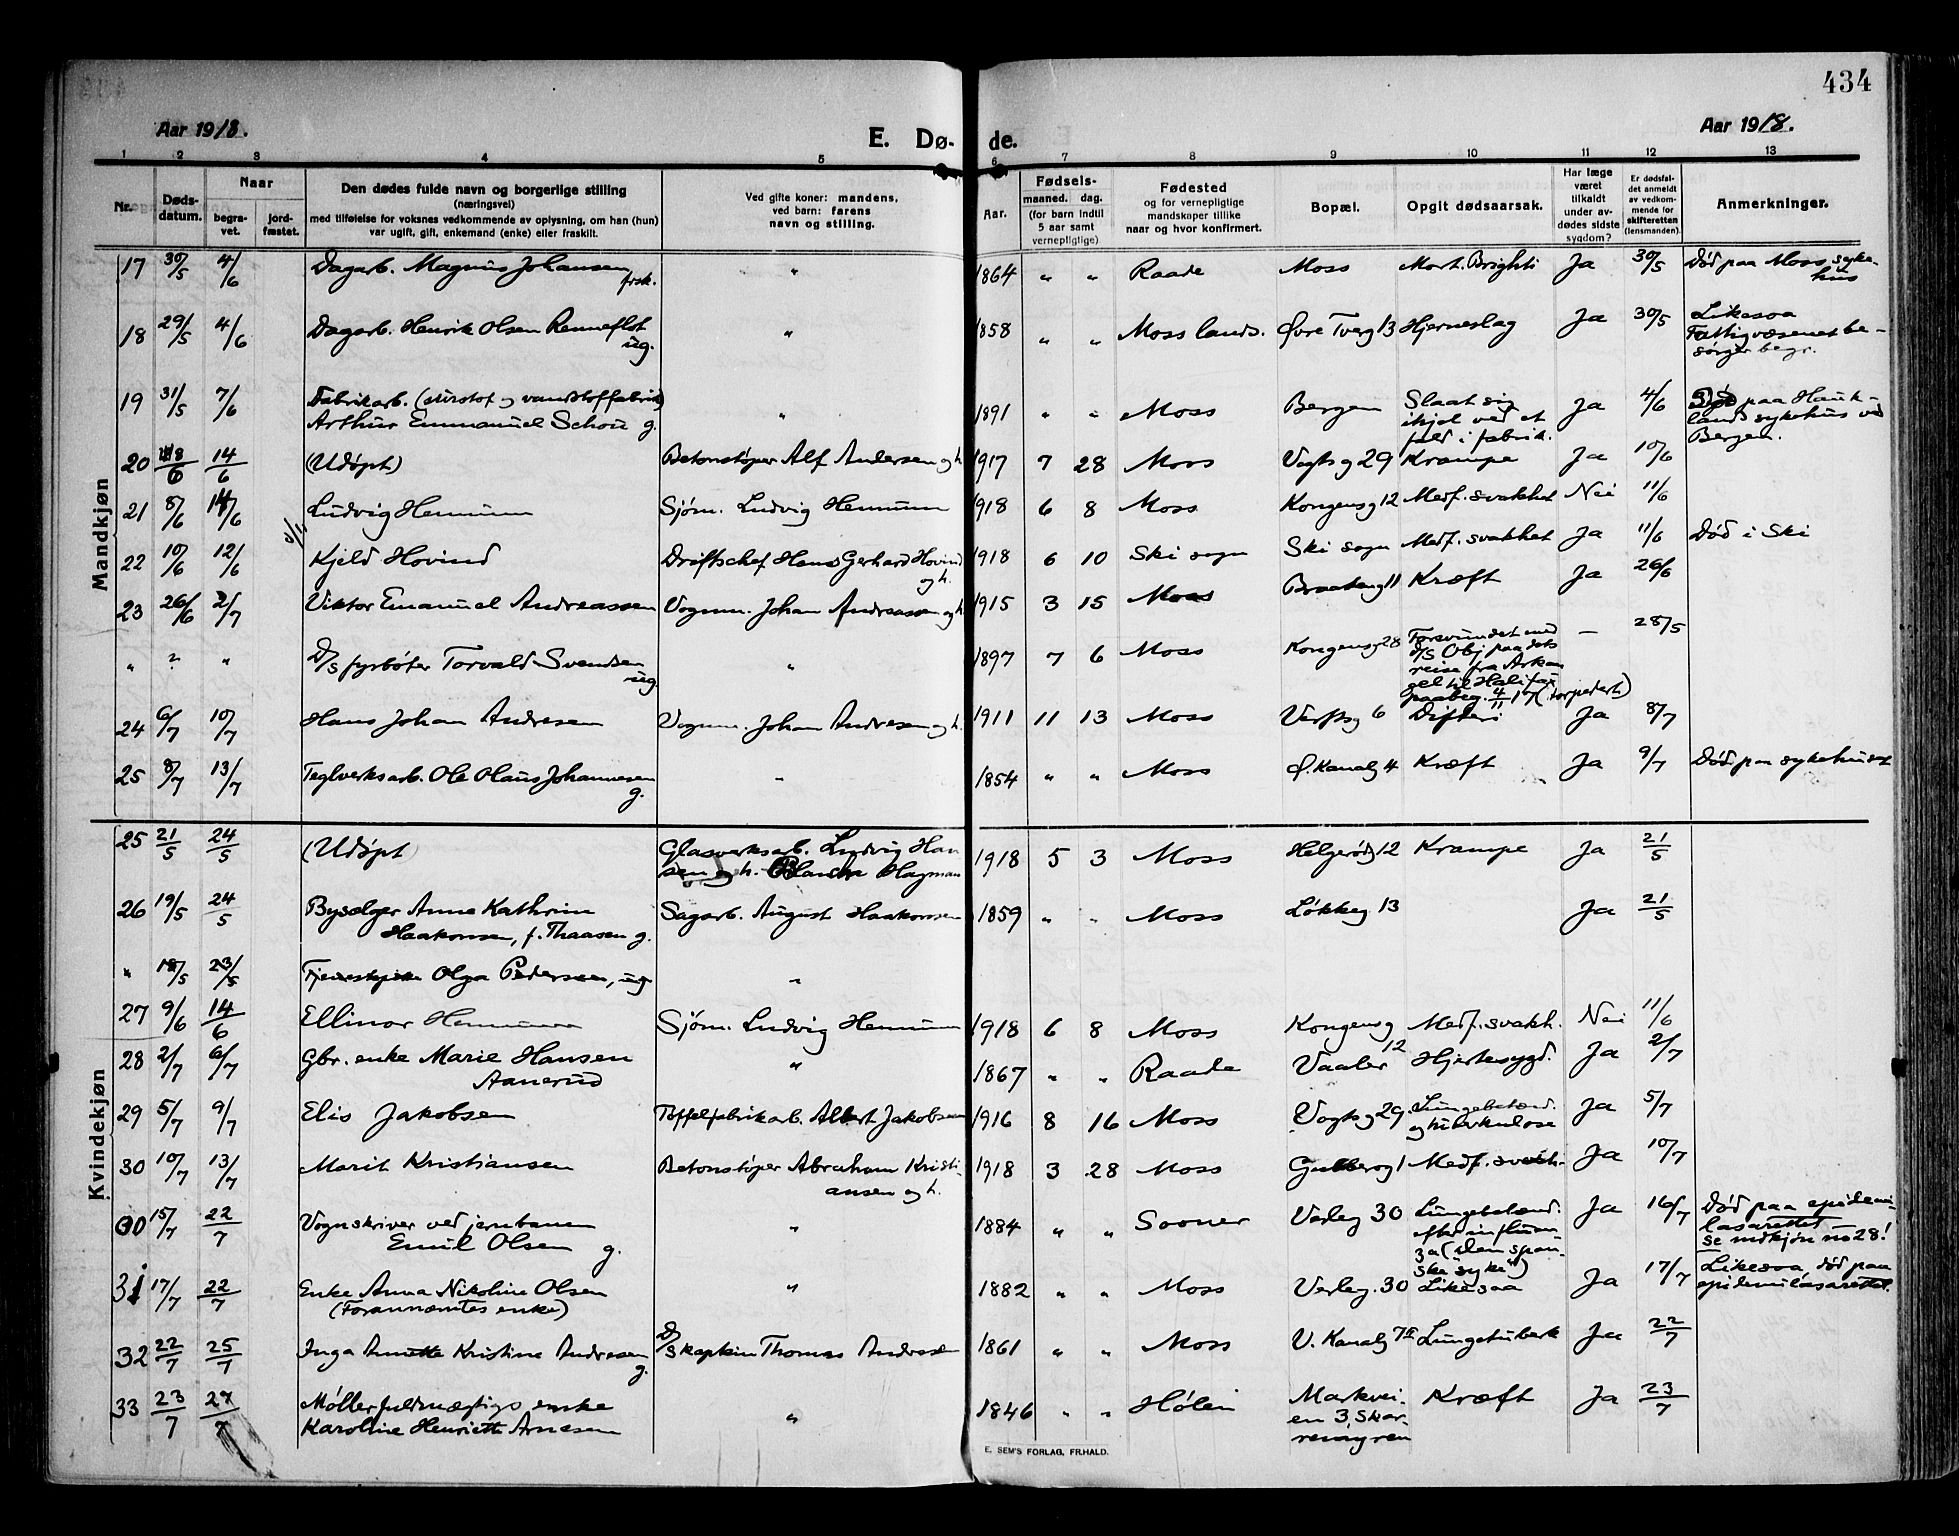 434
Aar 1918.
E. Dø- de.
Aar 1918.
1 2 3 4 5 6 7 8 9 10 11 12 13
Nr.
Døds-
datum.
Naar
begra-
vet.
jord-
fæstet.
Den dødes fulde navn og borgerlige stilling
(næringsvei)
med tilføielse for voksnes vedkommende av oplysning, om han (hun)
var ugift, gift, enkemand (enke) eller fraskilt.
Ved gifte koner: mandens,
ved barn: farens
navn og stilling.
Aar.
Fødsels-
maaned. dag.
(for barn indtil
5 aar samt
vernepligtige)
Fødested
og for vernepligtige
mandskaper tillike
naar og hvor konfirmert.
Bopæl.
Opgit dødsaarsak.
Har læge
været
tilkaldt
under av-
dødes sidste
sygdom?
Er dødsfal-
det anmeldt
av vedkom-
mende for
skifteretten
(lensmanden).
Anmerkninger.
Mandkjøn
17 30/5 4/6 Dagarb. Magnus Johansen " 1864 " " Raade Moss Mort. Brighti Ja 30/5 Død paa Moss syke-
frsk. hus
18 29/5 4/6 Dagarb. Henrik Olsen Renneflot " 1858 " " Moss lands. Øvre Tverg 13 Hjerneslag Ja 30/5 Likesaa
ug. Fattigvæsenet be-
sørger begr.
19 31/5 7/6 Fabrikarb. (surstof og vandstoffabrik) " 1891 " " Moss Bergen Slaat sig Ja 4/6 Død paa Hauk-
Arthur Emmanuel Schou g. ihjel ved et lands sykehus ved
fald i fabrik. Bergen.
20 8/6 14/6 (Udøpt) Betonstøper Alf Andersen og h. 1917 7 28 Moss Vogtsg 29 Krampe Ja 10/6
21 8/6 14/6 Ludvig Hennum Sjøm. Ludvig Hennum 1918 6 8 Moss Kongensg 12 Medf. svakhet Nei 11/6
22 10/6 12/6 Kjeld Hovind Driftschef Hans Gerhard Hovind 1918 6 10 Ski sogn Ski sogn Medf. svakhet Ja 11/6 Død i Ski
og h.
23 26/6 2/7 Viktor Emanuel Andreassen Vognm. Johan Andreassen og h. 1915 3 15 Moss Braateng 11 Kræft Ja 26/6
" ? " D/S fyrbøter Torvald Svendsen " 1897 7 6 Moss Kongensg 28 Forsvundet med — 28/5
ug. D/S Obj paa dets
reise fra Arkan
gel til Halifax
paabeg. 4/11 17 (torpedert)
24 6/7 10/7 Hans Johan Andresen Vognm. Johan Andresen og h. 1911 11 13 Moss Verftsg 6 Difteri Ja 8/7
25 8/7 13/7 Teglverksarb. Ole Olaus Johannesen " 1854 " " Moss Ø. Kanalg 4 Kræft Ja 9/7 Død paa sykehuset
g.
Kvindekjøn
25 21/5 24/5 (Udøpt) Glasverksarb. Ludvig Han 1918 5 3 Moss Helgerødg 12 Krampe Ja 21/5
sen og h. Blanche Hagman
26 19/5 24/5 Bysælger Anne Kathrin Sagarb. August Haakonsen 1859 " " Moss Løkkeg 13 Ja 21/5
Haakonsen, f. Thaasen g.
" 18/5 23/5 Tjenestepike Olga Pedersen, ug "
27 9/6 14/6 Ellinor Hennum Sjøm. Ludvig Hennum 1918 6 8 Moss Kongensg Medf. svakh. Nei 11/6
12
28 2/7 6/7 Gbr. enke Marie Hansen " 1867 " " Raade Vaaler Hjertesygd. Ja 2/7
Aanerud
29 5/7 9/7 Elis Jakobsen Tøffelfabrikarb. Albert Jakobsen 1916 8 16 Moss Vogtsg 29. Lungebetænd. Ja 5/7
og tuberkulose
30 10/7 13/7 Marit Kristiansen Betonstøper Abraham Kristi- 1918 3 28 Moss Gulberg 1 Medf. svakh. Ja 10/7
ansen og h.
30 15/7 22/7 Vognskriver ved jernbanen " 1884 " " Sooner Verleg 30 Lungebetænd. Ja 16/7 Død paa epidemi-
Emil Olsen g. efter influen- lasarettet
za (den span- se mdkjøn no 28!
ske syke")
31 17/7 22/7 Enke Anna Nikoline Olsen " 1882 " " Moss Verleg. 30 Likesaa Ja 17/7 Likesaa, død paa
(Forannævntes enke) epidemilasarettet.
32 22/7 25/7 Inga Annette Kristine Andresen D/S kaptein Thomas Andresen 1861 " " Moss V. Kanalg 7a Lungetuberk Ja 22/7
g.
33 23/7 27/7 Møllerfuldmægtigs enke " 1846 " " Hølen Markvei- Kræft Ja 23/7
Karoline Henriette Arnesen en 3, Skar-
remyren
E. SEM'S FORLAG, FR.HALD.